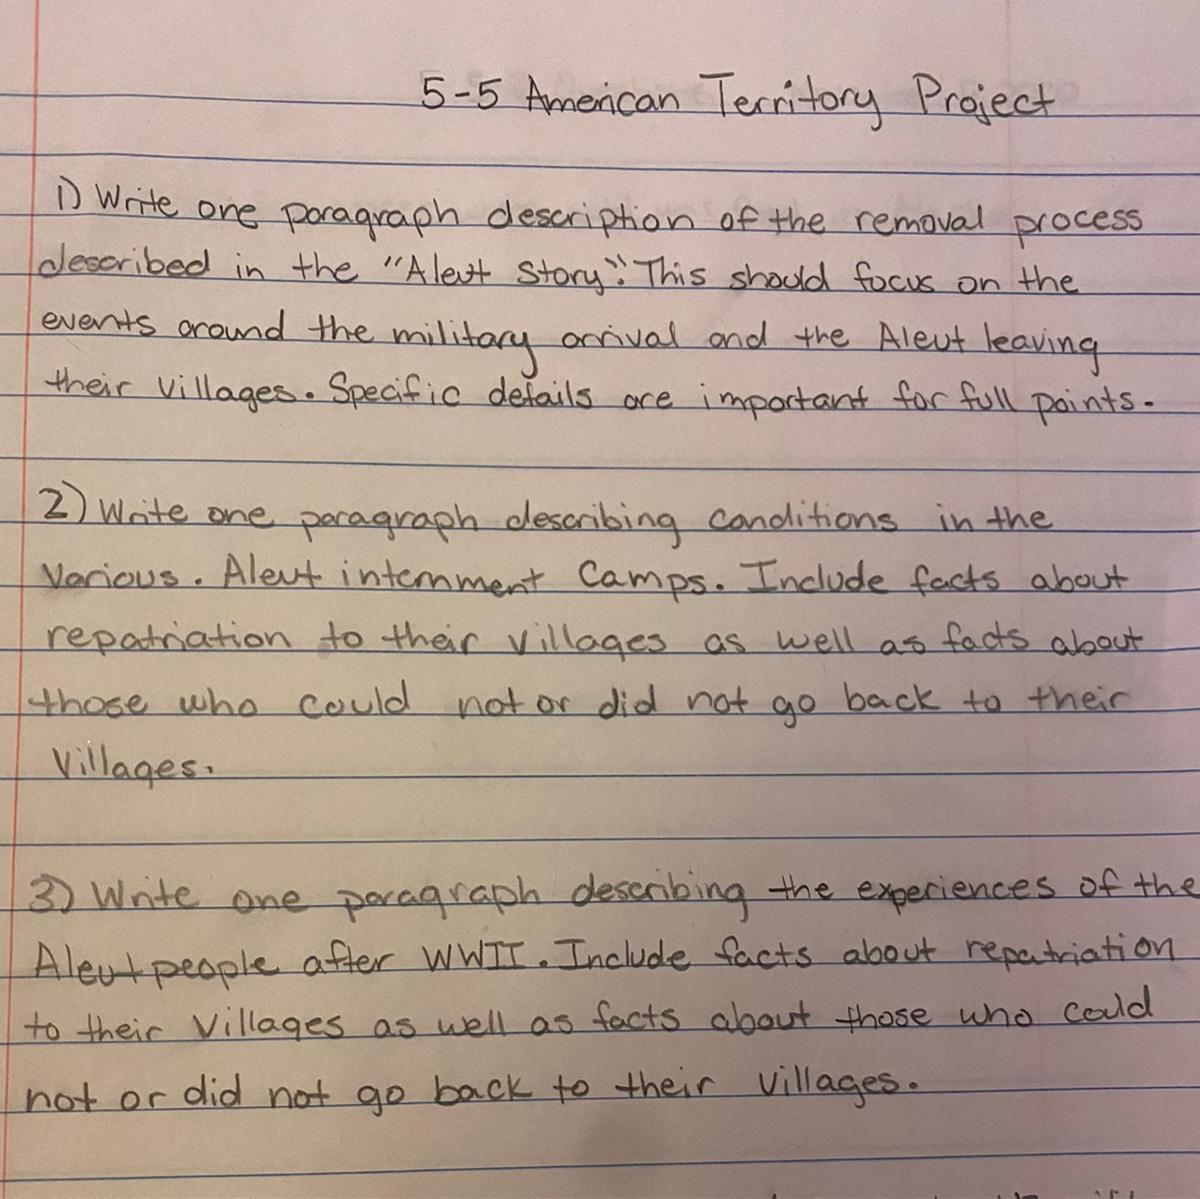 5-5 American Territory Project
1) Write one paragraph description of the removal process
described in the "Aleut Story". This should focus on the
events around the military arrival and the Aleut leaving
their villages. Specific details are important for full points.
2) Write one paragraph describing conditions in the
various. Aleut internment Camps. Include facts about
repatriation to their villages as well as facts about
those who could not or did not go back to their
villages.
3) Write one paragraph describing the experiences of the
Aleut people after WWII. Include facts about repatriation
to their villages as well as facts about those who could
not or did not go back to their villages.